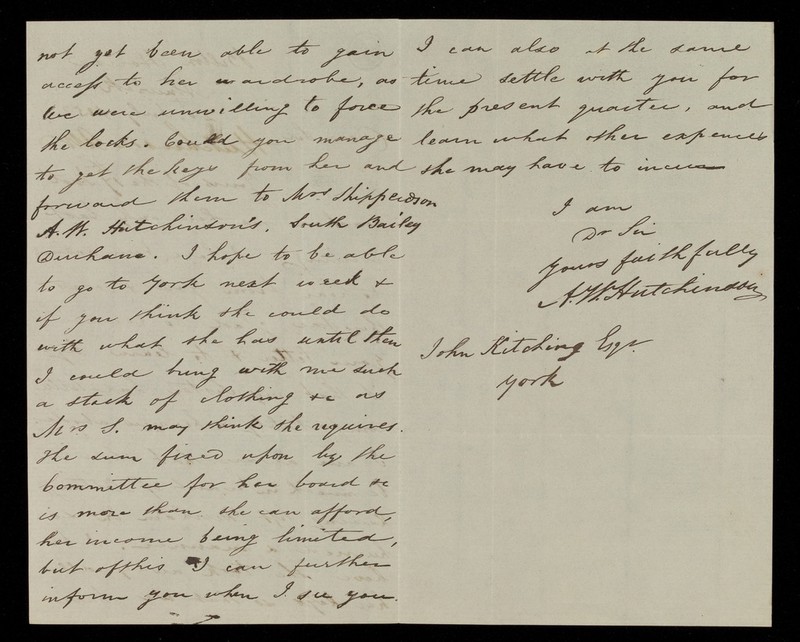 not yet been able to gain
access to her wardrobe, as
we were unwilling to force
the locks. Could you manage
to get the keys from her and
forward them to Mrs Shipperdson
A. W. Hutchinson's, South Bailey
Durham. I hope to be able
to go to York next week &
if you think she could do
with what she has until then
I could bring with me such
a stock of clothing &c as
Mrs S. may think she requires.
The sum fixed upon by the
Committee for her board &c
is more than she can afford,
her income being limited,
but of this I can further
inform you when I see you.
I can also at the same
time settle with you for
the present quarter, and
learn what other expences
she may have to incur
I am
Dr Sir
Yours faithfully
A. W. Hutchinson
John Kitching Esqr.
York